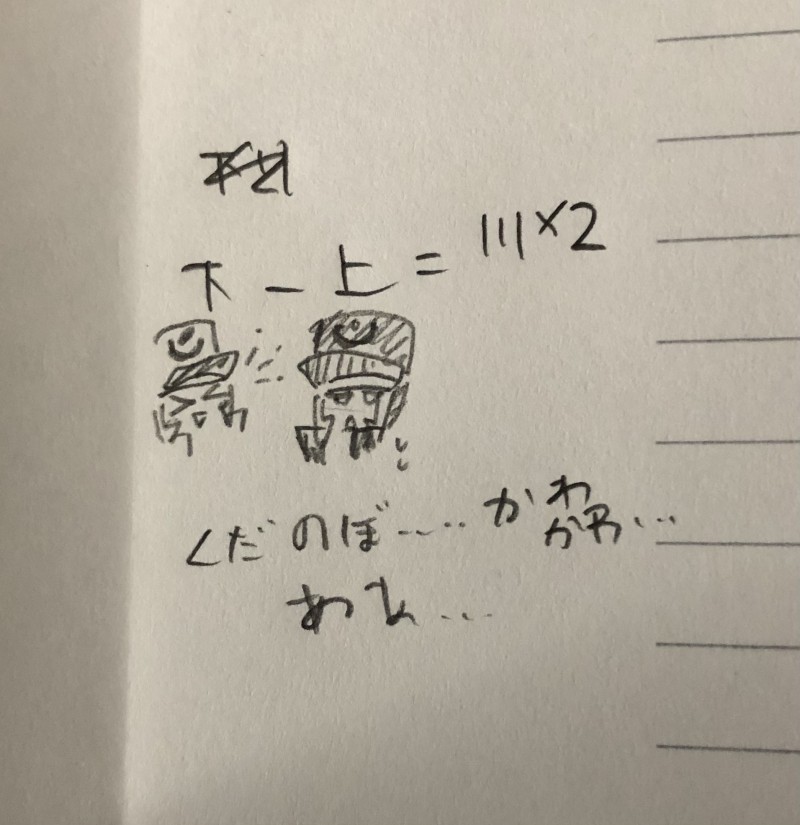 下 - 上 = 川×2
くだ のぼ..... かわ
かわ...